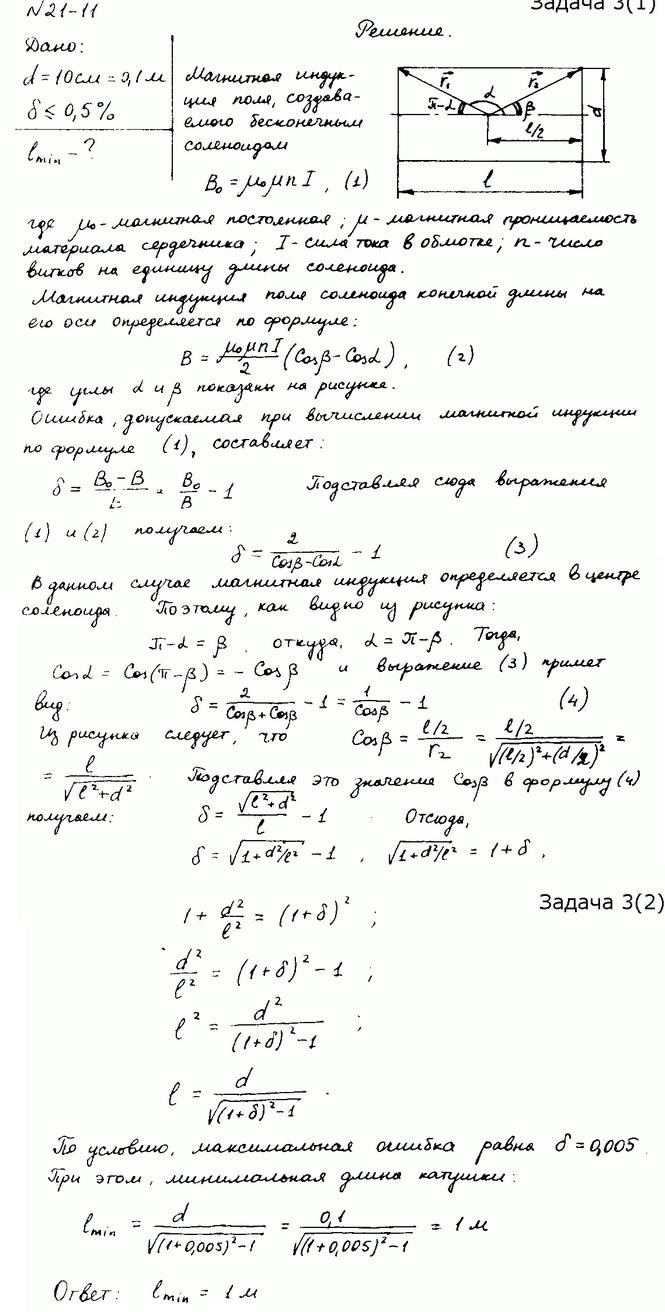 Задача 3(1)
N21-11
Решение.
Дано:
d = 10см = 0,1 м
δ ≤ 0,5 %
l min - ?
Магнитная индук-
ция поля, создава-
емого бесконечным
соленоидом
B₀ = μ₀μnI , (1)
r⃗₁ α r⃗₂
π-α β
l/2
d
l
где μ₀ - магнитная постоянная; μ - магнитная проницаемость
материала сердечника; I - сила тока в обмотке; n - число
витков на единицу длины соленоида.
Магнитная индукция поля соленоида конечной длины на
его оси определяется по формуле:
B = μ₀μnI/2 (Cosβ - Cosα) , (2)
где углы α и β показаны на рисунке.
Ошибка, допускаемая при вычислении магнитной индукции
по формуле (1), составляет:
δ = B₀ - B / = B₀/B - 1 Подставляя сюда выражения
(1) и (2) получаем:
δ = 2/(Cosβ - Cosα) - 1 (3)
В данном случае магнитная индукция определяется в центре
соленоида. Поэтому, как видно из рисунка:
π-α = β , откуда, α = π-β . Тогда,
Cosα = Cos(π-β) = - Cosβ и выражение (3) примет
вид: δ = 2/(Cosβ + Cosβ) - 1 = 1/Cosβ - 1 (4)
Из рисунка следует, что Cosβ = (l/2)/r₂ = (l/2)/√((l/2)² + (d/2)²) =
= l/√(l² + d²) . Подставляя это значение Cosβ в формулу (4)
получаем: δ = √(l² + d²)/l - 1 Отсюда,
δ = √(1 + d²/l²) - 1 , √(1 + d²/l²) = 1 + δ ,
Задача 3(2)
1 + d²/l² = (1 + δ)² ;
d²/l² = (1 + δ)² - 1 ;
l² = d²/((1 + δ)² - 1) ;
l = d/√((1 + δ)² - 1) .
По условию, максимальная ошибка равна δ = 0,005 .
При этом, минимальная длина катушки:
l min = d/√((1 + 0,005)² - 1) = 0,1/√((1 + 0,005)² - 1) = 1 м
Ответ: l min = 1 м